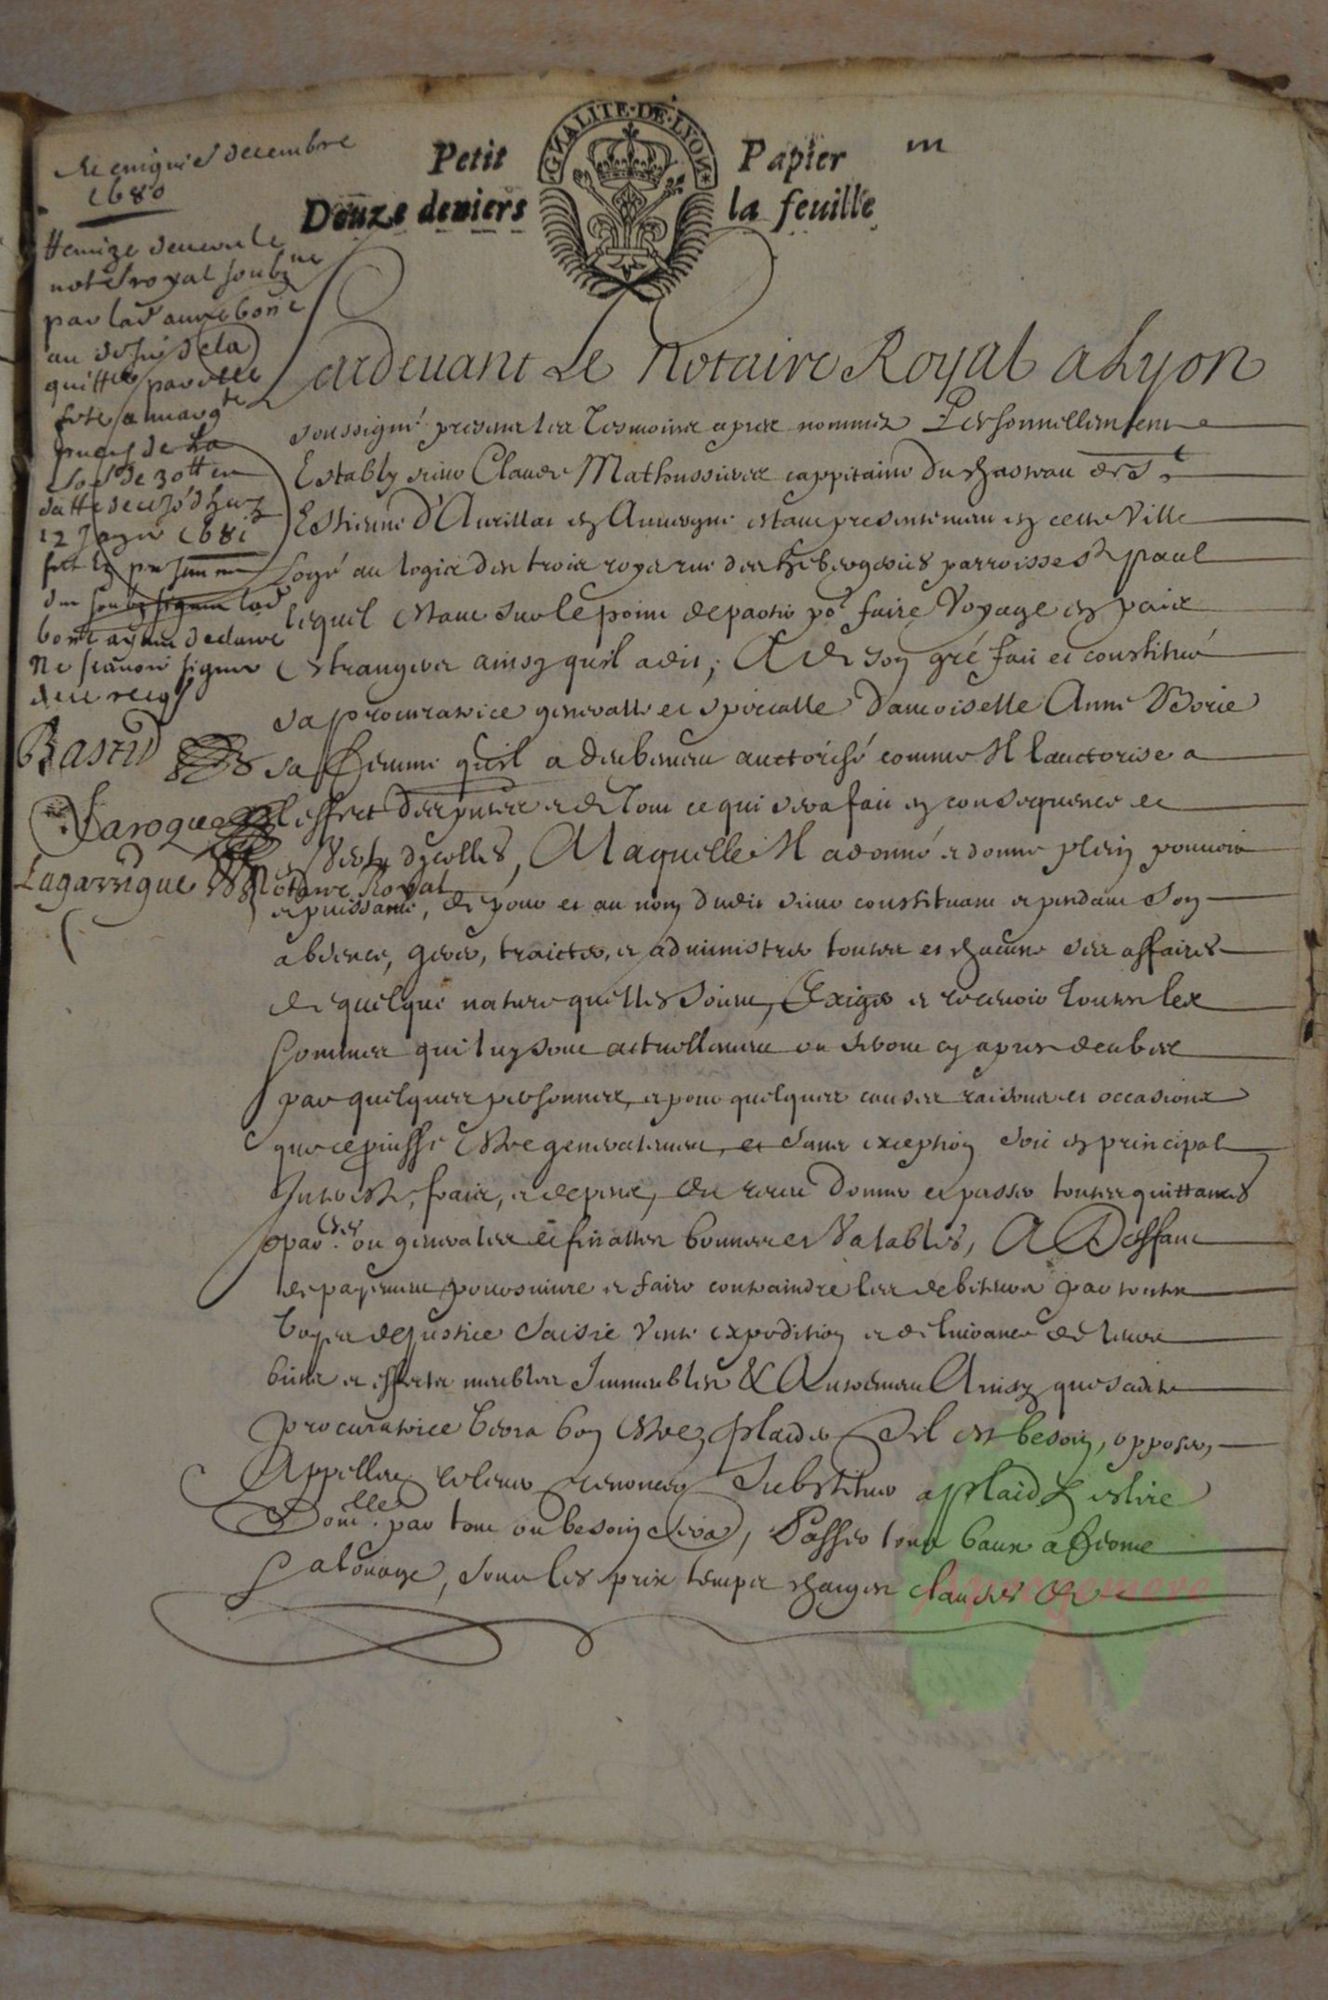 decembre
1680
Petit Papier
GNALITE·DE·LYON
m
Douze deniers la feuille
Remize devers le
notre royal soubzne
par lad anne borie
au
quitte par elle
1681
ne scavoir signer
Bastid
Laroque
Lagarrigue Notaire Royal
Pardevant Le Notaire Royal a Lyon
soussigné presens les tesmoins apres nommez Personnellement
Estably sieur Claude Mathussieres cappitaine du chasteau de St
Estienne d'Aurillac en Auvergne estant presentement en cette Ville
Logé au logis des trois roys rue des hebergeries parroisse St paul
lequel estant sur le point de partir por faire Voyage en païs
estrangers ainsy quil a dit, A de son gré fait et constitué
sa procuratrice generalle et specialle Damoiselle Anne Borie
sa femme qu'il a deubement auctorisé comme Il lauctorise a
l'effect des putes et de tout ce qui sera fait en consequence et
Vertu dycelles, A laquelle Il a donné et donne plein pouvoir
et puissance, de pour et au nom dudit sieur constituant et pendant Son
absence, gerer, traicter, et administrer toutes et chacune ses affaires
de quelque nature quelles soient, Exiger et recevoir toutes les
sommes qui luy sont actuellement ou seront cy apres deubes
par quelques personnes, et pour quelques causes raisons et occasions
que ce puisse estre generalement, et sans exception soit en principal
Interestz, fraix, et depens, du receu donner et passer toutes quittances
partres ou generalles et finalles bonnes et Valables, A Deffaut
de payement poursuivre et faire contraindre les debiteurs par toutes
Voyes de justice saisie vente expedition et delivrance de leurs
biens et effects meubles Immeubles & Autrement Ainsy que sadite
procuratrice Verra bon estre, plaider Sil est besoin, opposer,
Appeller relever renoncer Substituer a plaidz eslire
Domlle par tout ou besoin sera, Passer tous baux a ferme
et a louage, soubz les prix temps charges clauses et